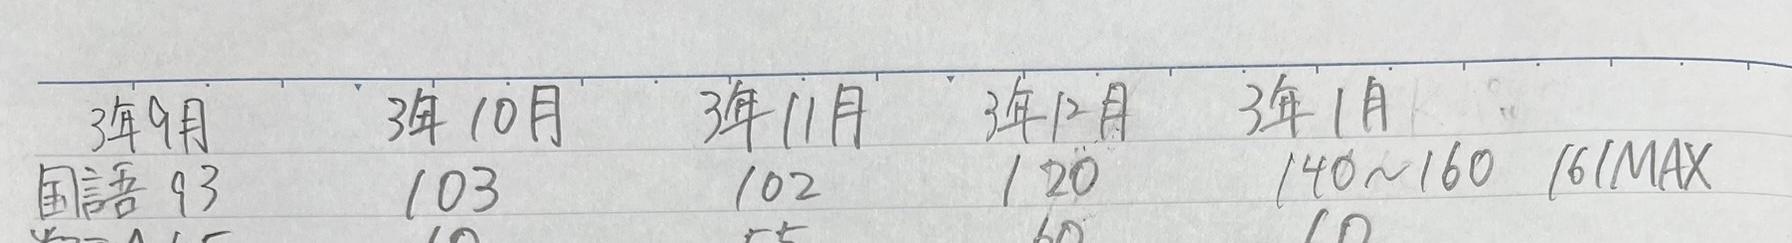 3年9月 3年10月 3年11月 3年12月 3年1月
国語 93 103 102 120 140~160 161MAX